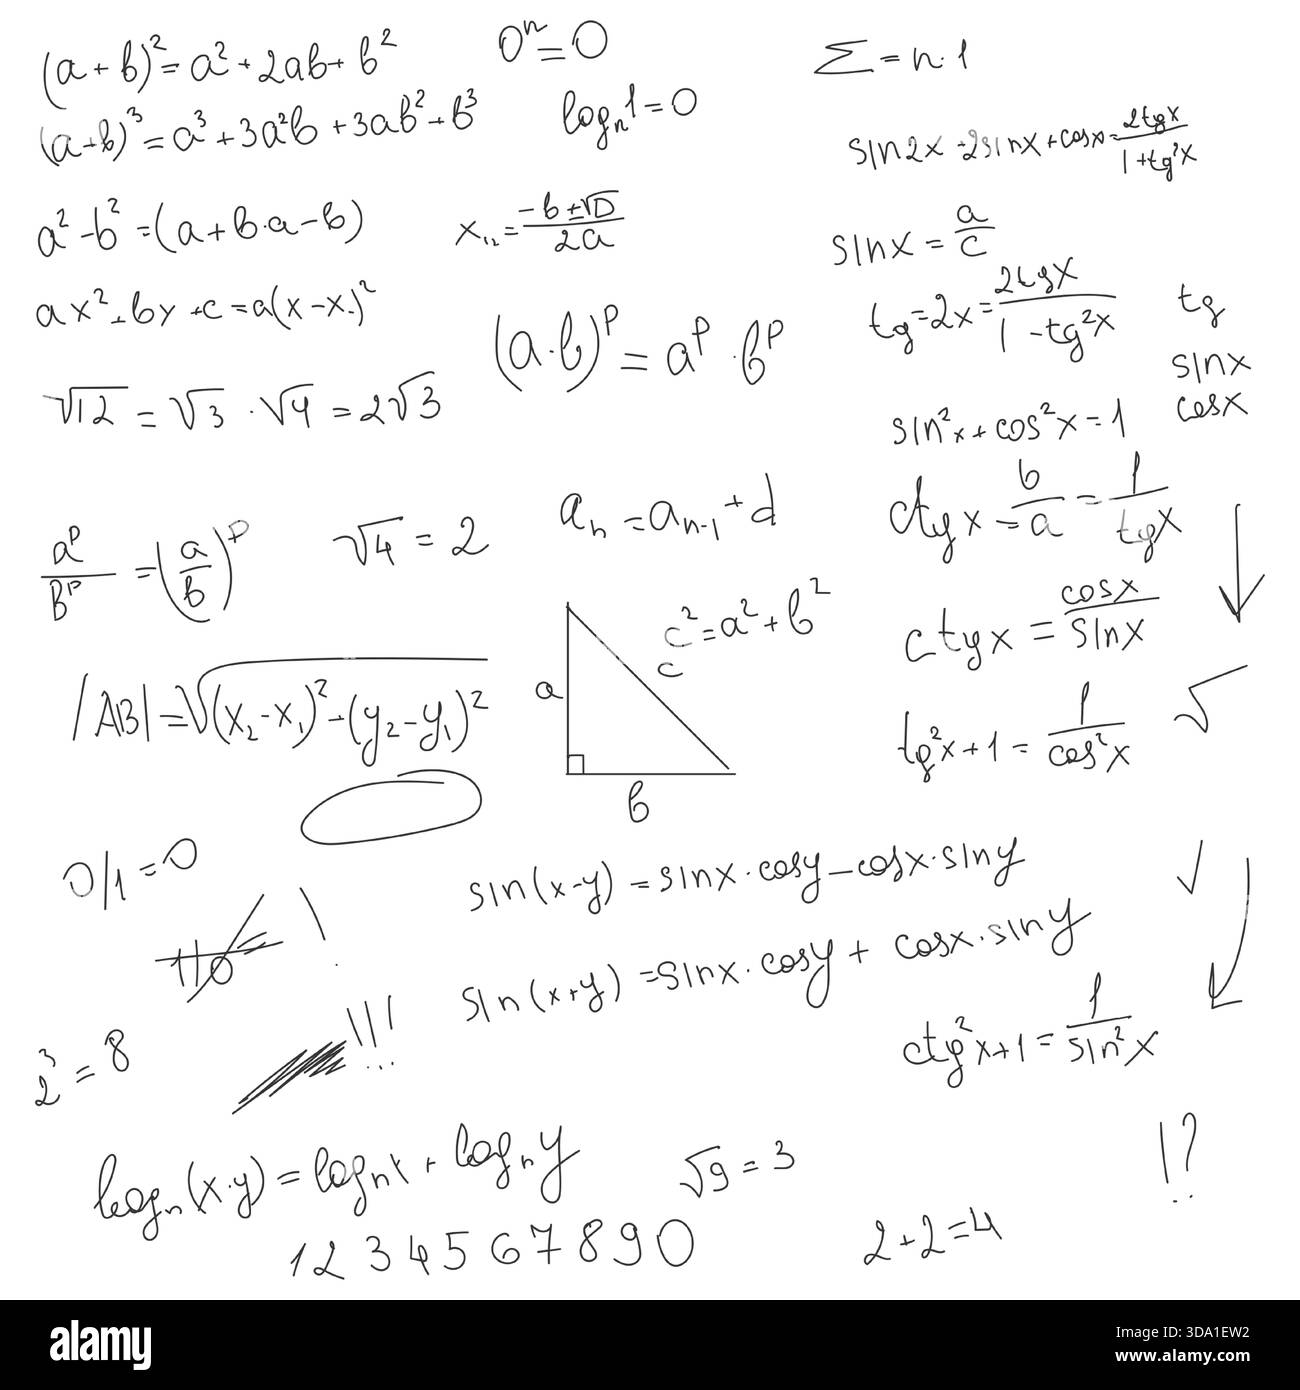 (a+b)²=a²+2ab+b²
0ⁿ=0
Σ=n·1
(a+b)³=a³+3a²b+3ab²+b³
logₙ1=0
sin2x=2sinx+cosx=2tgx/1+tg²x
a²-b²=(a+b·a-b)
x₁,₂=-b±√D/2a
sinx=a/c
ax²+by+c=a(x-x.)²
(a·b)ᵖ=aᵖ·bᵖ
tg=2x=2tgx/1-tg²x
tg
sinx
cosx
√12=√3·√4=2√3
sin²x+cos²x=1
aᵖ/Bᵖ=(a/b)ᵖ
√4=2
aₙ=aₙ₋₁+d
ctgx=b/a=1/tgx
c²=a²+b²
ctgx=cosx/sinx
a
c
b
|AB|=√(x₂-x₁)²-(y₂-y₁)²
tg²x+1=1/cos²x
√
0/1=0
!
sin(x-y)=sinx·cosy-cosx·siny
sin(x+y)=sinx·cosy+cosx·siny
!!!
2³=8
ctg²x+1=1/sin²x
logₙ(x·y)=logₙx+logₙy
√9=3
!?
1 2 3 4 5 6 7 8 9 0
2+2=4
alamy
Image ID: 3DA1EW2
www.alamy.com